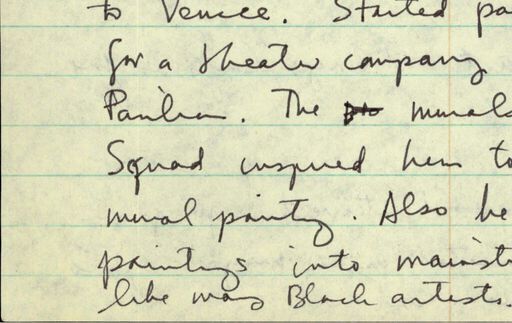 to Venice. Started pa
for a theater company
Pavilion. The murals
Squad inspired him to
mural painting. Also he
paintings into mainst
like many Black artists.